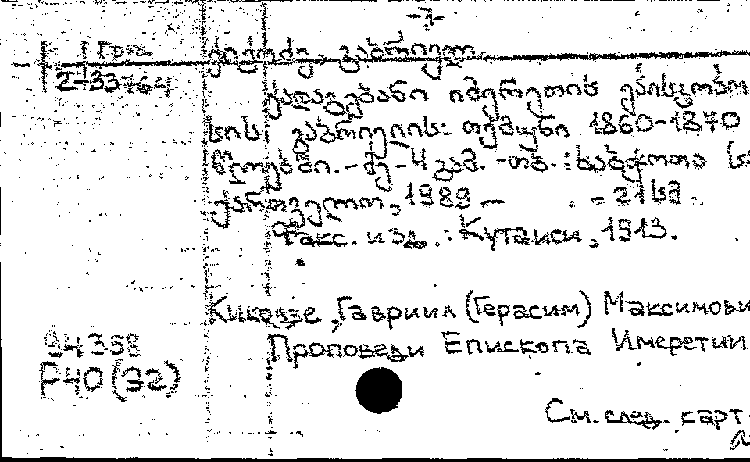 -7-
Груз. ქიქოძე, გაბრიელ.
2-33764
ქადაგებანი იმერეთის ეპისკოპო
სის გაბრიელის: თქმული 1860-1870
წლებში. - მე-4 გამ. - თბ.: საბჭოთა
ქართველო, 1989 - . - 21 სმ.
Факс. изд.: Кутаиси, 1913.
Кикодзе, Гавриил (Герасим) Максимови
94358
Проповеди Епископа Имеретии
Р40(32)
См. след. карт.